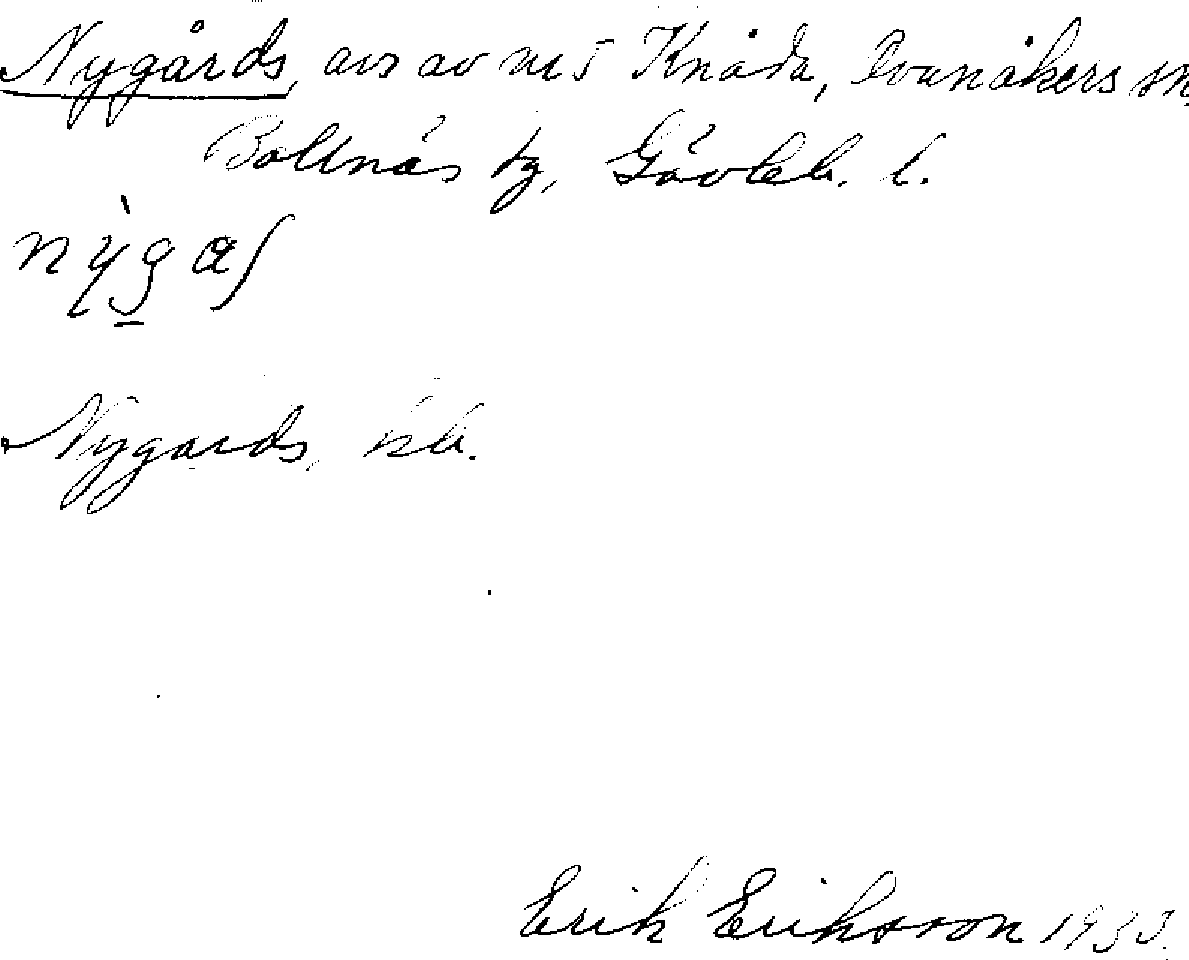 Nygårds, avs av nr 5 Knåda, Ovanåkers sn,
Bollnäs tg, Gävleb. l.
nỳgaʃ
Nygårds, jsb.
Erik Eriksson 1933.